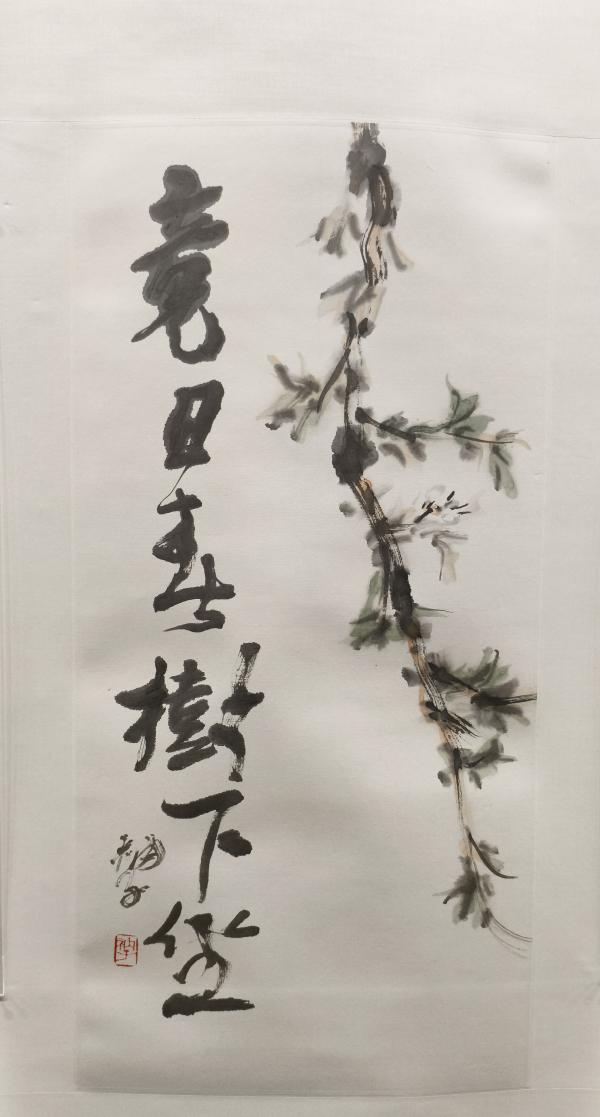 竟日春樹下坐